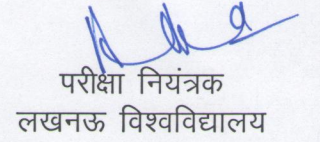 परीक्षा नियंत्रक
लखनऊ विश्वविद्यालय